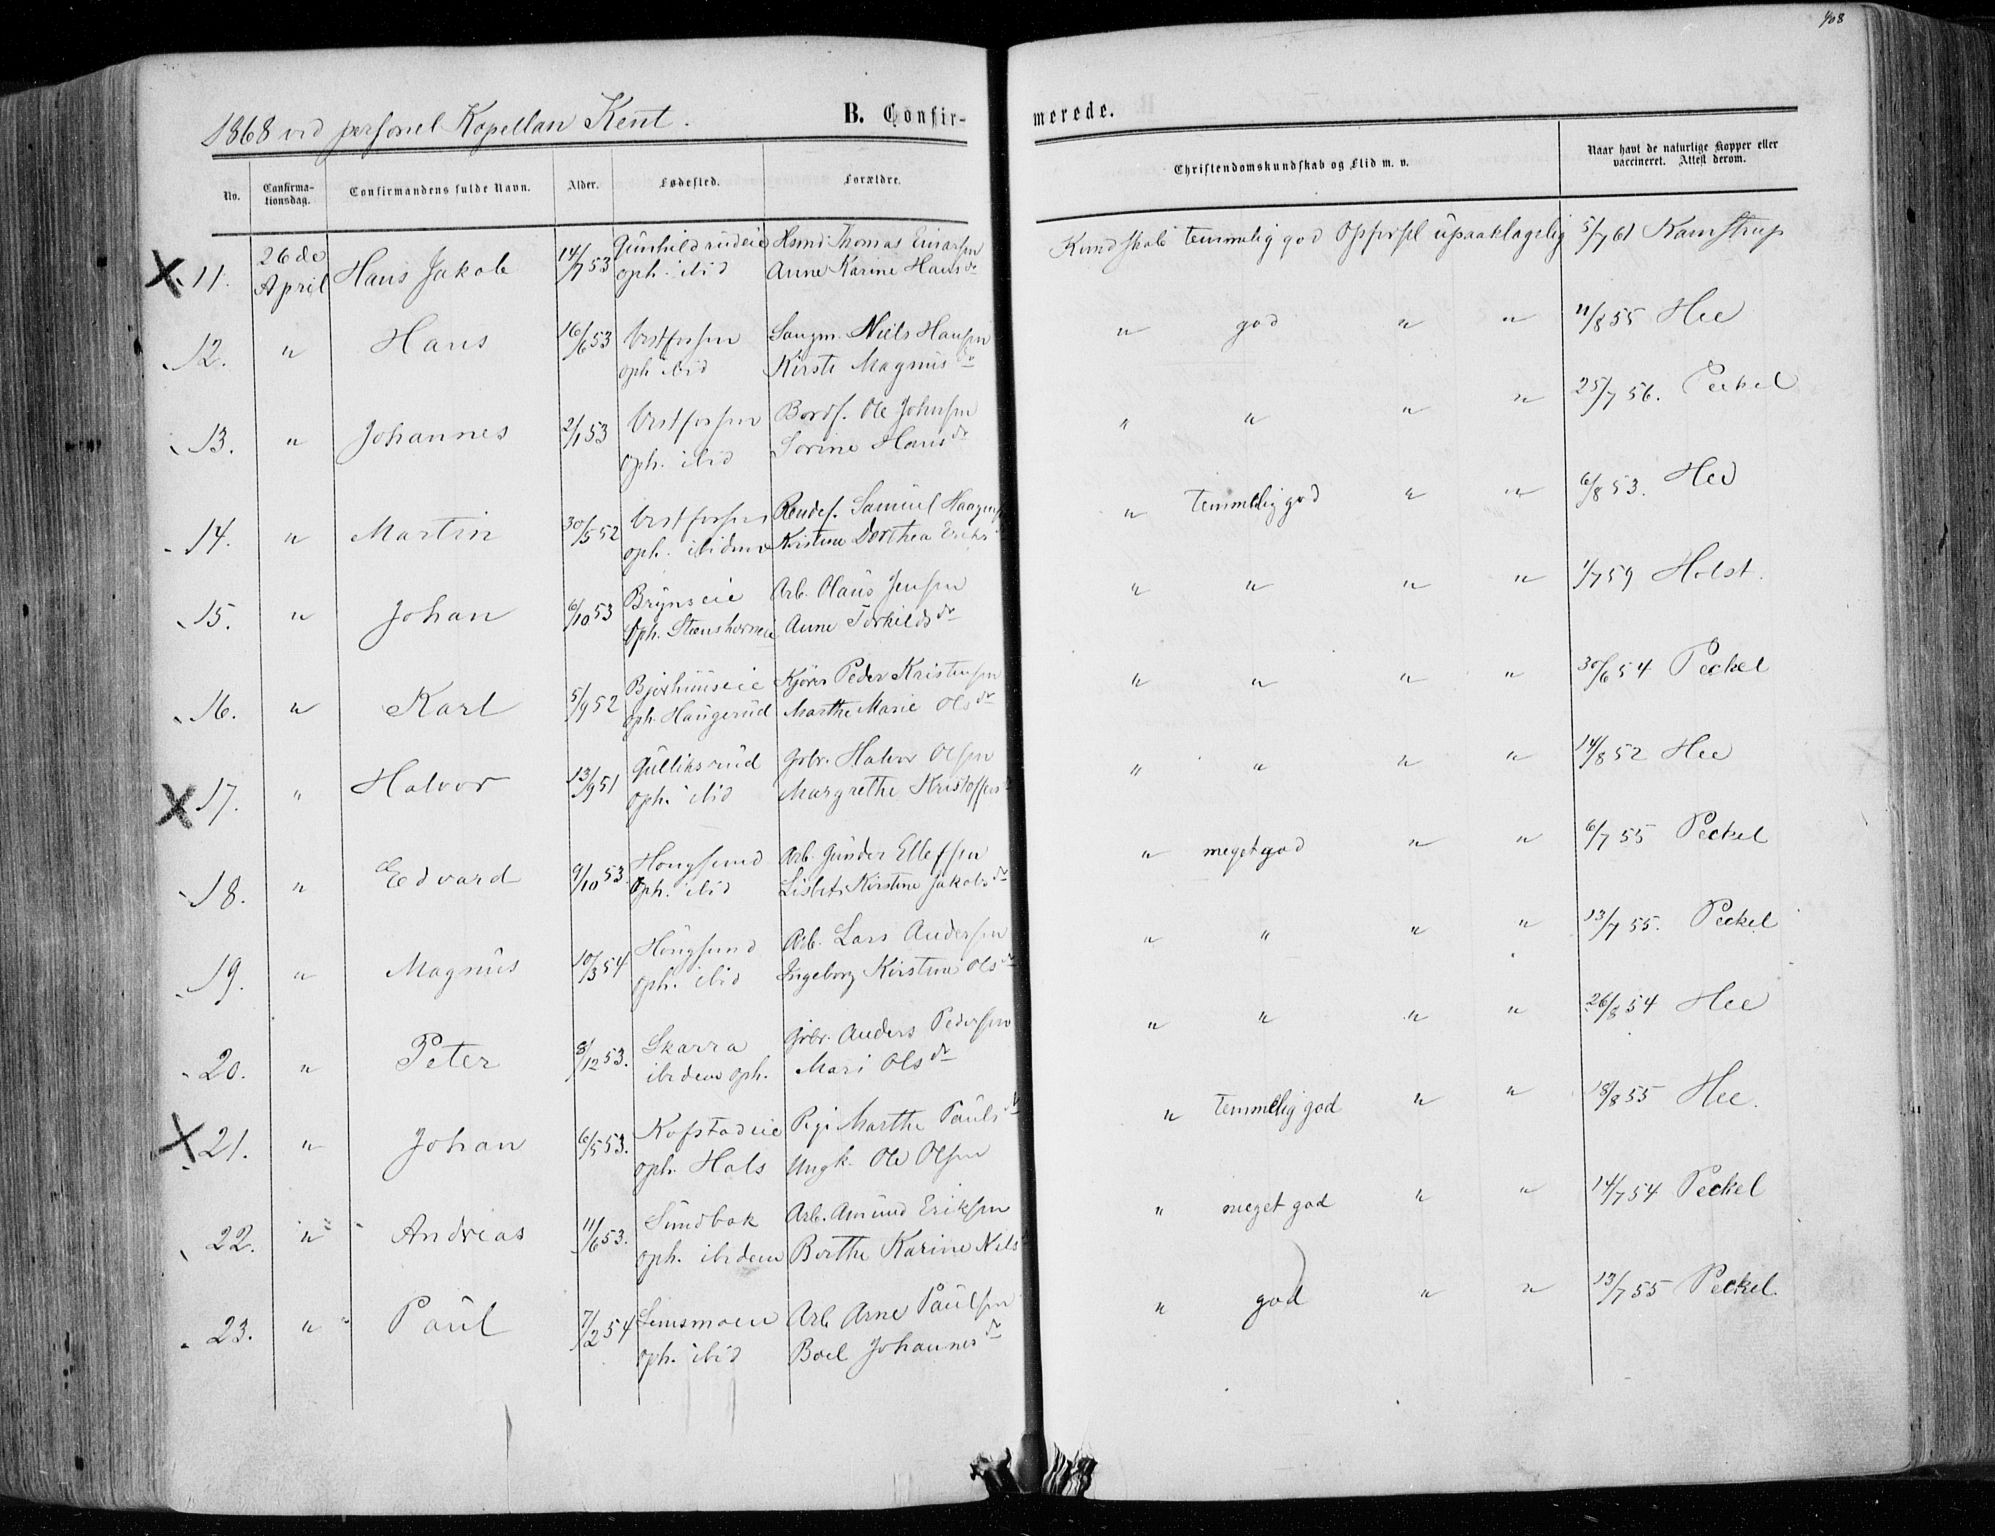 408
1868 ved personel Kapellan Kent.
B. Confirmerede.
No. Confirmationsdag. Confirmandens fulde Navn. Alder. Fødested. Forældre. Christendomskundskab og Flid m. v. Naar havt de naturlige Kopper eller vaccineret. Attest derom.
11. 26de April Hans Jakob 14/7 53 Gunhildrudeie Hsmd. Thomas Einarsen Kundskab temmelig god Opførsel upaaklagelig 5/7 61 Kamstrup
oph. ibid Anne Karine Hansdr
12. " Hans 16/6 53 Vestfossen Saugm. Niels Hansen " god " " 11/8 55 Hee
oph ibid Kirste Magnusdr
13. " Johannes 2/1 53 Vestfossen Bordf. Ole Johnsen " " " " 25/7 56. Peckel
oph. ibid Sorine Hansdr
14. " Martin 30/5 52 Vestfossen Rendef. Samuel Haagens " temmelig god " " 6/8 53. Hee
oph. ibidem Kristine Dorthea Eriks
15. " Johan 6/10 53 Brynseie Arb. Olaus Jensen " " " " 1/7 59 Holst.
oph. Stenshorneie Anne Torkildsdr
16. " Karl 5/9 52 Bjørhuuseie Kjører Peder Kristensen " " " " 30/6 54 Peckel
oph. Haugerud Marthe Marie Olsdr
17. " Halvor 13/9 51 Gulliksrud Grbr. Halvor Olsen " " " " 14/8 52 Hee
oph. ibid Margrethe Kristoffers
18. " Edvard 9/10 53. Hougsund Arb. Gunder Ellefsen " meget god " " 6/7 55 Peckel
oph. ibid Lisbet Kirstine Jakobsdr
19. " Magnus 10/3 54 Hougsund Arb. Lars Andersen " " " " 13/7 55. Peckel
oph. ibid Ingeborg Kirstine Olsdr
20. " Peter 8/12 53. Skarra Grbr. Anders Pedersen " " " " 26/8 54 Hee
ibidem oph. Mari Olsdr
21. " Johan 6/5 53. Kofstadeie Pige Marthe Paulsdr " temmelig god " " 18/8 55 Hee.
oph. Hals Ungk. Ole Olsen
22. " Andreas 11/6 53. Sundbak Arb. Amund Eriksen " meget god " " 14/7 54 Peckel
oph. ibidem Berthe Karine Nils
23. " Paul 7/2 54 Semsmoen Arb Arne Paulsen " god " " 13/7 55 Peckel.
oph. ibid Boel Johannesdr